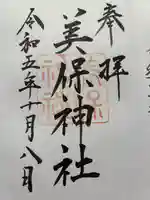 奉拝
美保神社
令和五年十月八日